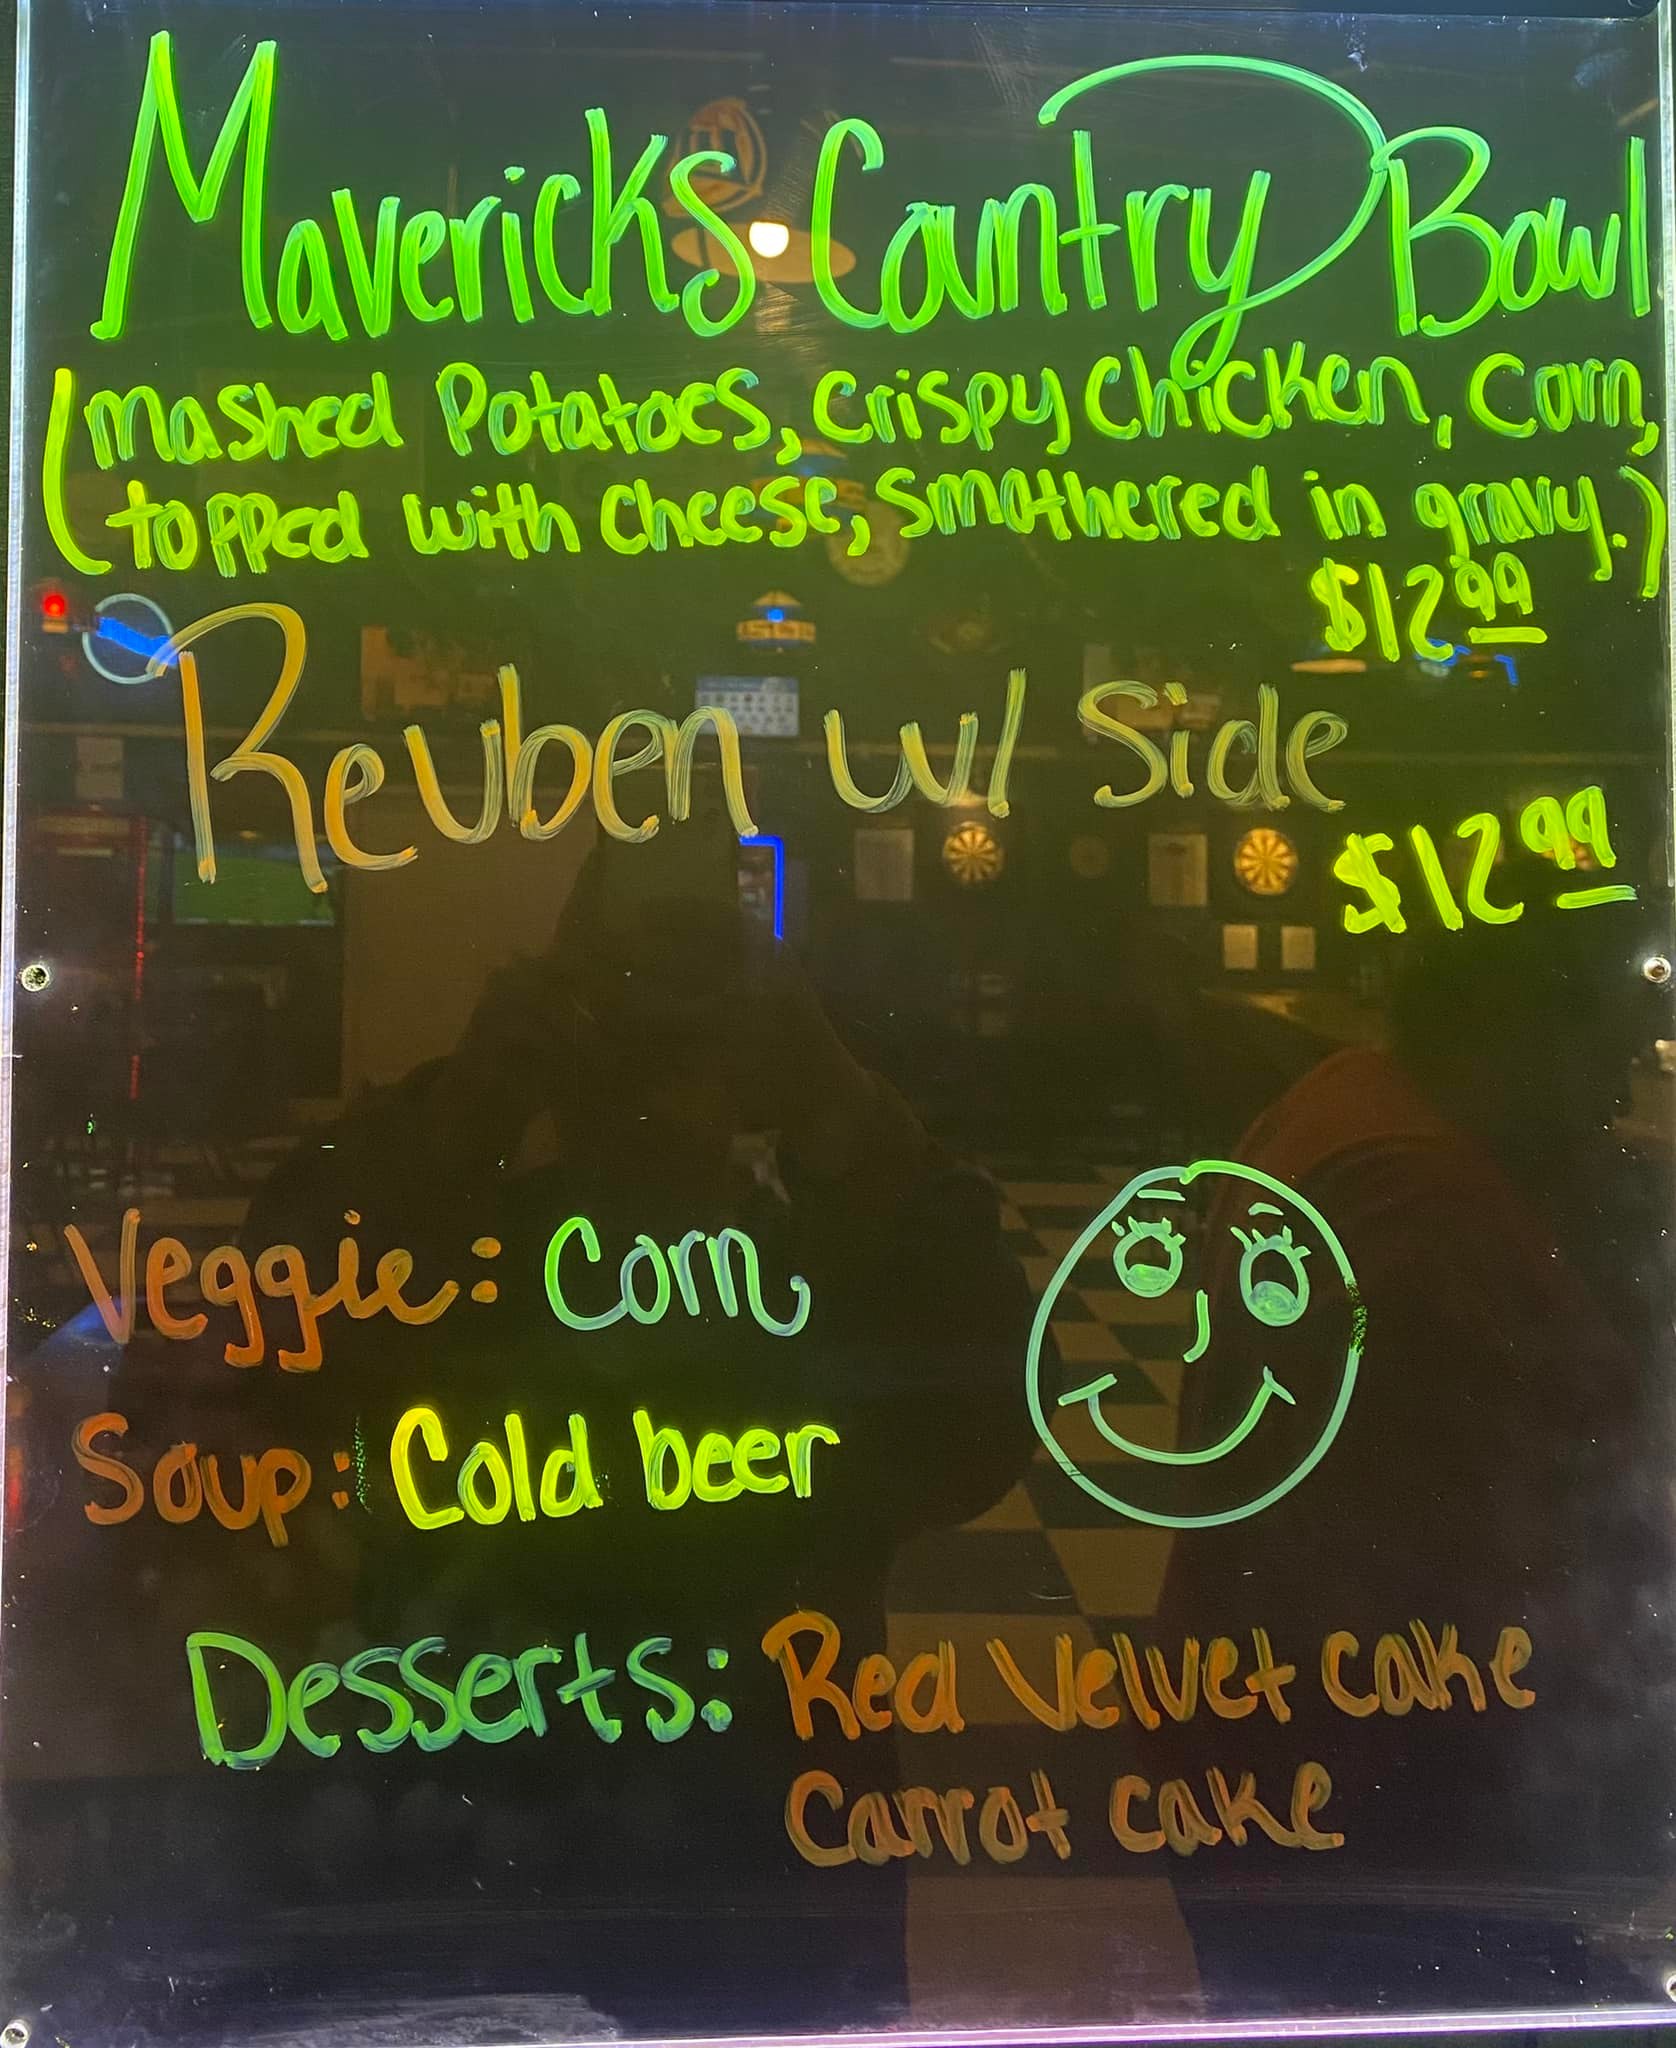 Mavericks Country Bowl
(mashed Potatoes, crispy chicken, corn,
topped with cheese, smothered in gravy.)
$12.99
Reuben w/ Side
$12.99
Veggie: Corn
Soup: Cold beer
Desserts: Red Velvet cake
Carrot cake